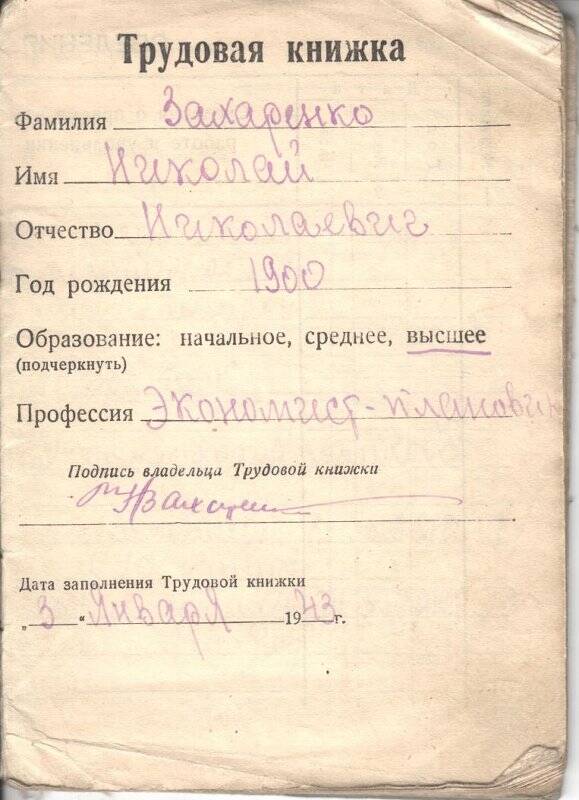 Трудовая книжка
Фамилия Захаренко
Имя Николай
Отчество Николаевич
Год рождения 1900
Образование: начальное, среднее, высшее
(подчеркнуть)
Профессия Экономист-плановик
Подпись владельца Трудовой книжки
Дата заполнения Трудовой книжки
„3“ Января 1943г.